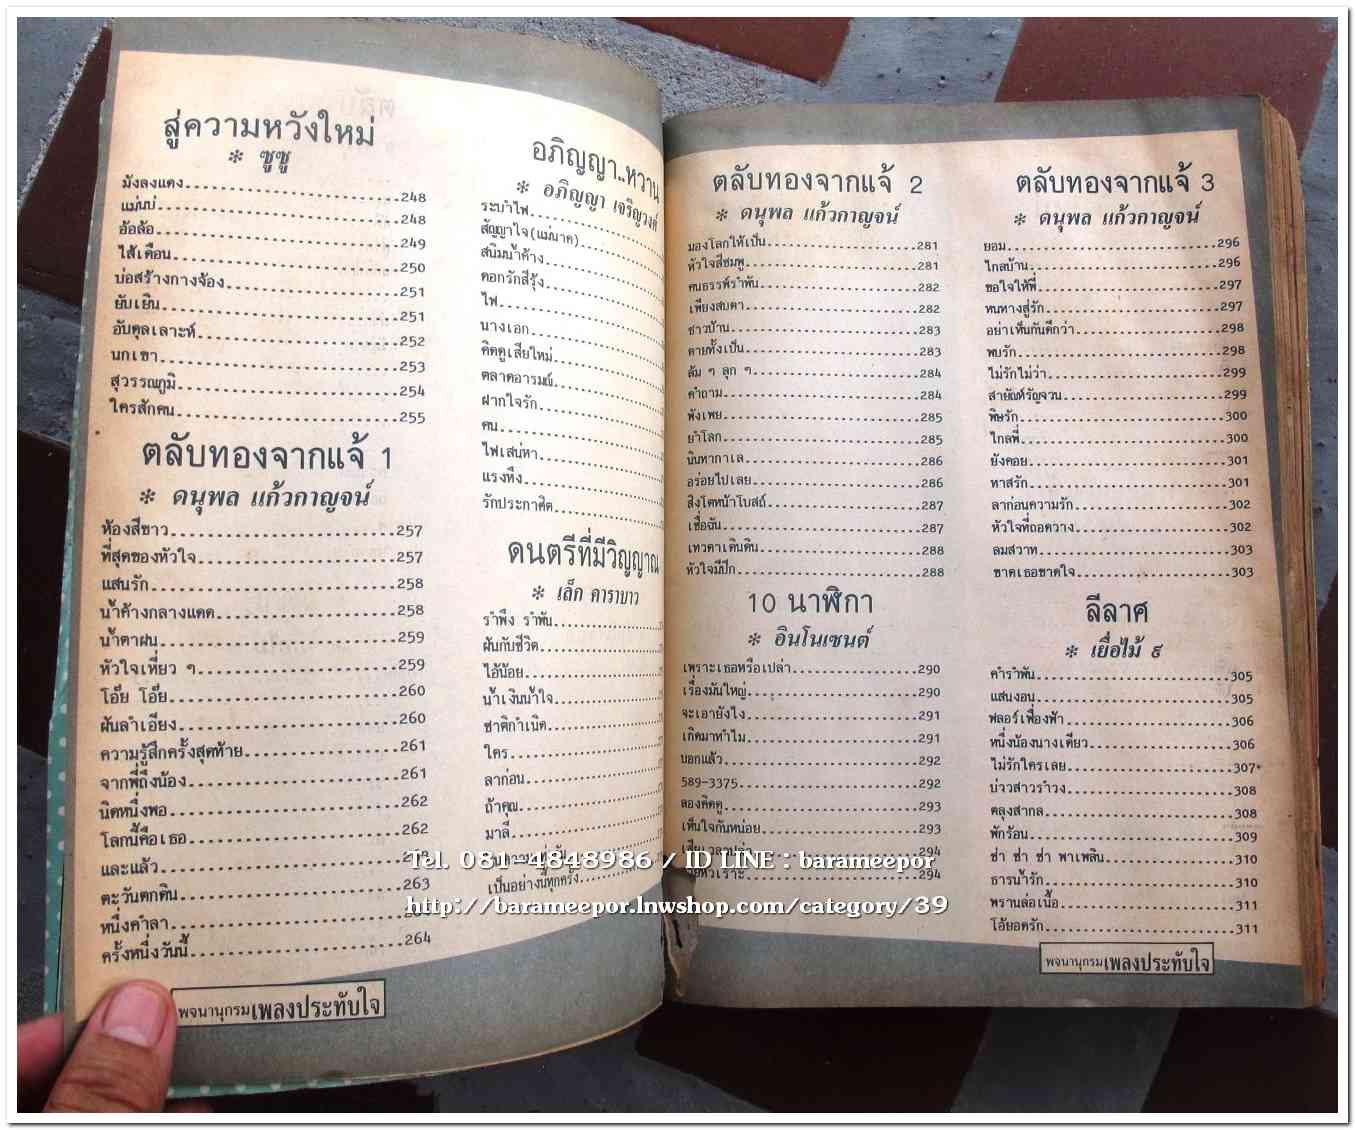 สู่ความหวังใหม่
* ซูซู
มังลงแดง 248
แม่นบ่ 248
อ้อล้อ 249
ไส้เดือน 250
บ่อสร้างกางจ้อง 251
ยับเยิน 251
อับดุลเลาะห์ 252
นกเขา 253
สุวรรณภูมิ 254
ใครสักคน 255
ตลับทองจากแจ้ 1
* ดนุพล แก้วกาญจน์
ห้องสีขาว 257
ที่สุดของหัวใจ 257
แสนรัก 258
น้ำค้างกลางแดด 258
น้ำตาฝน 259
หัวใจเหี่ยว ๆ 259
โอ๊ย โอ๊ย 260
ฝันลำเอียง 260
ความรู้สึกครั้งสุดท้าย 261
จากพี่ถึงน้อง 261
นิดหนึ่งพอ 262
โลกนี้คือเธอ 262
และแล้ว
ตะวันตกดิน 263
หนึ่งคำลา
ครั้งหนึ่งวันนี้ 264
พจนานุกรมเพลงประทับใจ
อภิญญา..หวาน
* อภิญญา เจริญวงศ์
ระบำไฟ
สัญญาใจ(แม่นาค)
สนิมน้ำค้าง
ดอกรักสีรุ้ง
ไฟ
นางเอก
คิดดูเสียใหม่
ตลาดอารมณ์
ฝากใจรัก
คน
ไฟเสน่หา
แรงหึง
รักประกาศิต
ดนตรีที่มีวิญญาณ
* เล็ก คาราบาว
รำพึง รำพัน
ฝันกับชีวิต
ไอ้น้อย
น้ำเงินน้ำใจ
ชาติกำเนิด
ใคร
ลาก่อน
ถ้าคุณ
มาลี
เป็นอย่างนี้ทุกครั้ง
ตลับทองจากแจ้ 2
* ดนุพล แก้วกาญจน์
มองโลกให้เป็น 281
หัวใจสีชมพู 281
คนธรรพ์รำพัน 282
เพียงสบตา 282
ชาวบ้าน 283
ตายทั้งเป็น 283
ล้ม ๆ ลุก ๆ 284
คำถาม 284
พังเพย 285
ยำโลก 285
นินทากาเล 286
อร่อยไปเลย 286
สิงโตหน้าโบสถ์ 287
เชื่อฉัน 287
เทวดาเดินดิน 288
หัวใจมีปีก 288
10 นาฬิกา
* อินโนเซนต์
เพราะเธอหรือเปล่า 290
เรื่องมันใหญ่ 290
จะเอายังไง 291
เกิดมาทำไม 291
บอกแล้ว 292
589-3375 292
ลองคิดดู 293
เห็นใจกันหน่อย 293
294
294
ตลับทองจากแจ้ 3
* ดนุพล แก้วกาญจน์
ยอม 296
ไกลบ้าน 296
ขอใจให้พี่ 297
หนทางสู่รัก 297
อย่าเห็นกันดีกว่า 298
พบรัก 298
ไม่รักไม่ว่า 299
สายัณห์รัญจวน 299
พิษรัก 300
ไกลพี่ 300
ยังคอย 301
ทาสรัก 301
ลาก่อนความรัก 302
หัวใจที่ถอดวาง 302
ลมสวาท 303
ขาดเธอขาดใจ 303
ลีลาศ
* เยื่อไม้ ๙
คำรำพัน 305
แสนงอน 305
ฟลอร์เฟื่องฟ้า 306
หนึ่งน้องนางเดียว 306
ไม่รักใครเลย 307
บ่าวสาวรำวง 308
ตลุงสากล 308
พักร้อน 309
ช่า ช่า ช่า พาเพลิน 310
ธารน้ำรัก 310
พรานล่อเนื้อ 311
โอ้ยอดรัก 311
พจนานุกรมเพลงประทับใจ
Tel. 081-4848986 / ID LINE : barameepor
http://barameepor.lnwshop.com/category/39